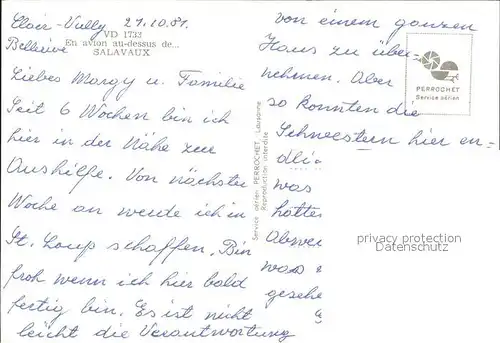 Clair-Vully 21.10.81.
Bellerive
VD 1733
En avion au-dessus de...
SALAVAUX
Liebes Margy u. Familie
Seit 6 Wochen bin ich
hier in der Nähe zur
Aushilfe. Von nächster
Woche an werde ich in
St. Loup schaffen. Bin
froh wenn ich hier bald
fertig bin. Es ist nicht
leicht die Verantwortung
Service aérien PERROCHET, Lausanne
Reproduction interdite
von einem ganzen
Haus zu über-
nehmen. Aber
so konnten die
Schwestern hier en-
dlic
was
hatte
Abwe
was
gesehe
PERROCHET
Service aérien
privacy protection
Datenschutz